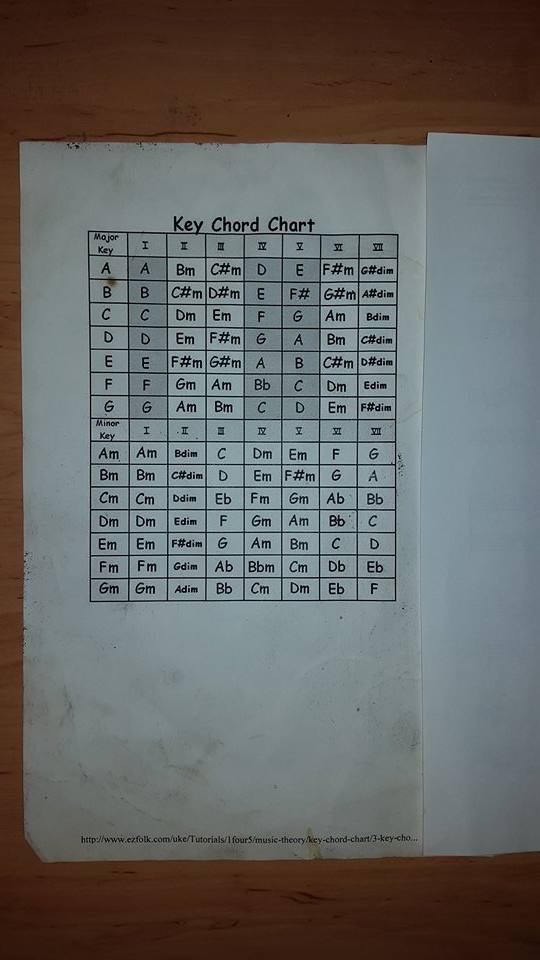 Key Chord Chart
Major Key I II III IV V VI VII
A A Bm C#m D E F#m G#dim
B B C#m D#m E F# G#m A#dim
C C Dm Em F G Am Bdim
D D Em F#m G A Bm C#dim
E E F#m G#m A B C#m D#dim
F F Gm Am Bb C Dm Edim
G G Am Bm C D Em F#dim
Minor Key I II III IV V VI VII
Am Am Bdim C Dm Em F G
Bm Bm C#dim D Em F#m G A
Cm Cm Ddim Eb Fm Gm Ab Bb
Dm Dm Edim F Gm Am Bb C
Em Em F#dim G Am Bm C D
Fm Fm Gdim Ab Bbm Cm Db Eb
Gm Gm Adim Bb Cm Dm Eb F
http://www.ezfolk.com/uke/Tutorials/1four5/music-theory/key-chord-chart/3-key-cho...